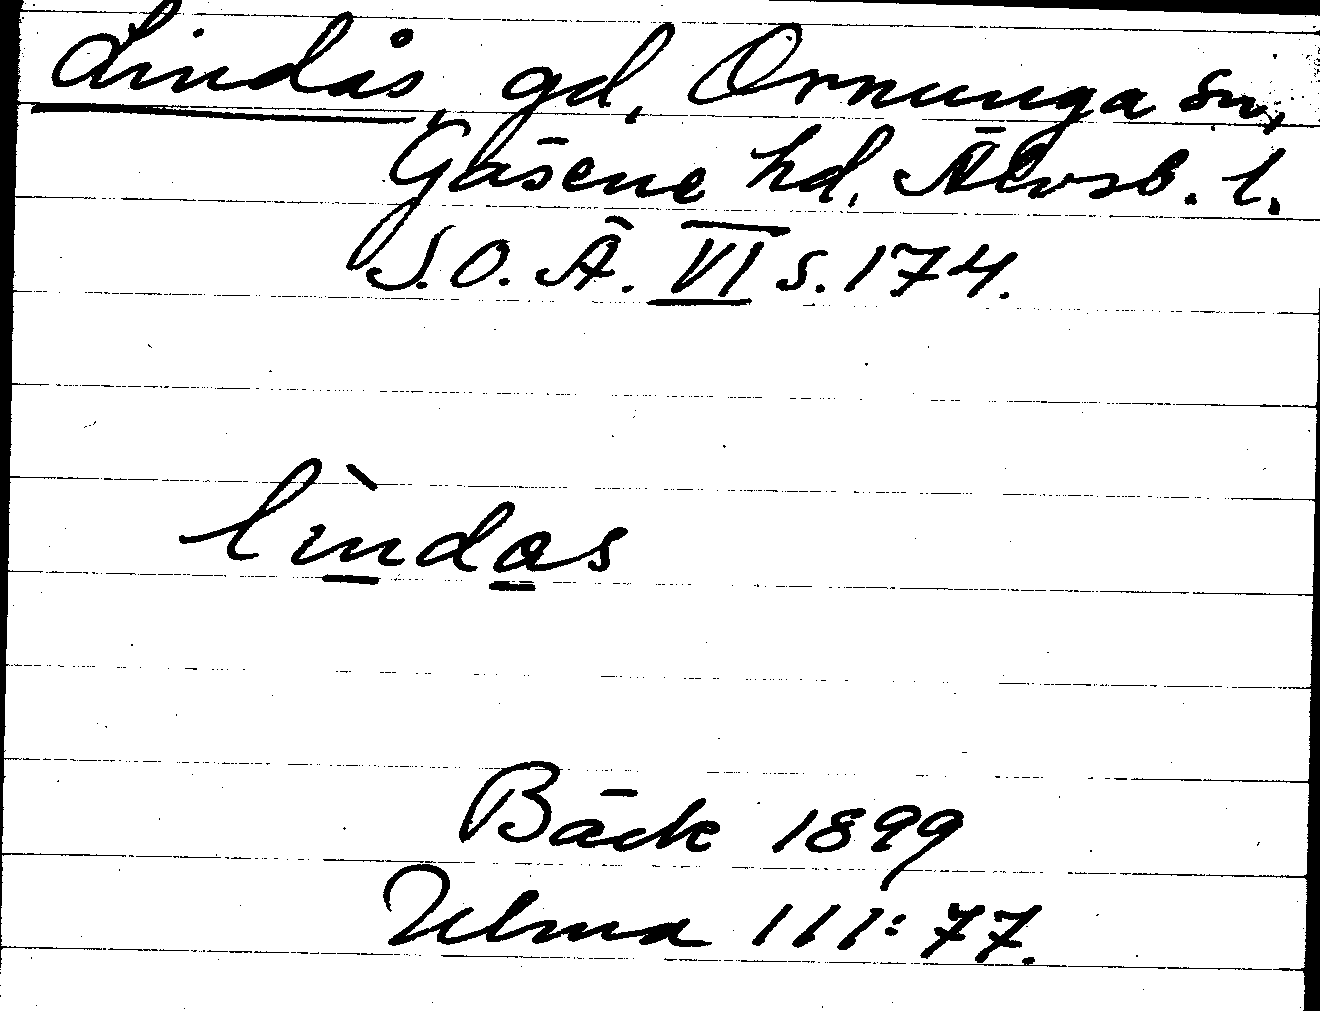 Lindås, gd, Ornunga sn,
Gäsene hd, Älvsb. l.
S.O.Ä. VI s. 174.
lìndas
Bäck 1899
Ulma 111:77.